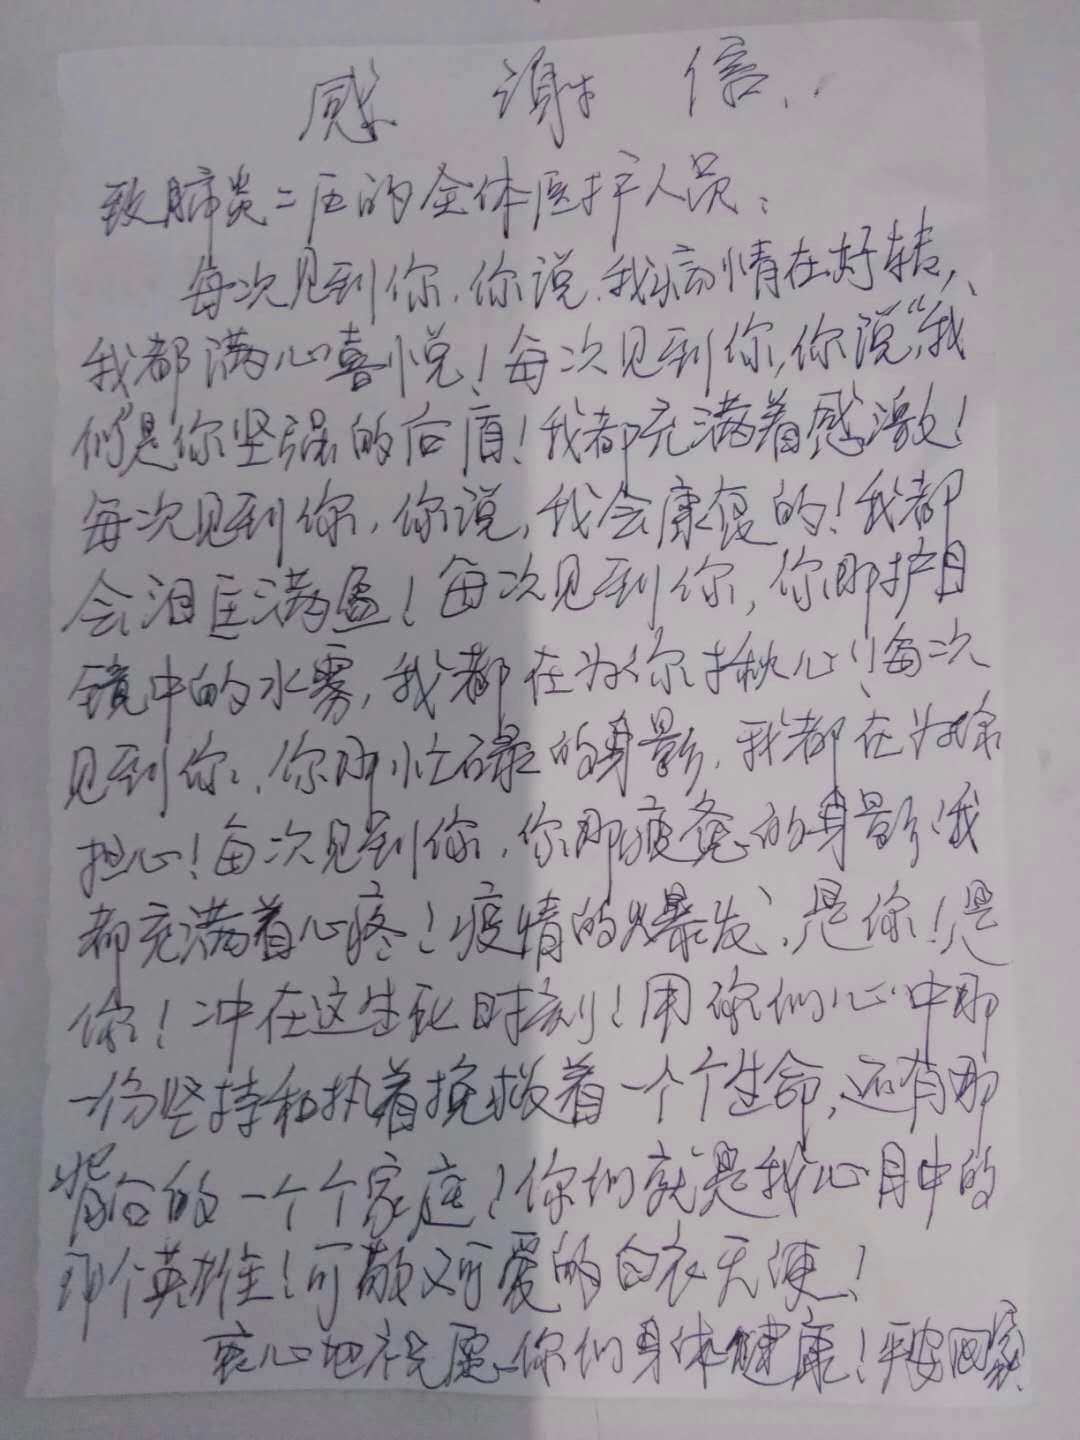 感谢信
致肺炎二区的全体医护人员:
每次见到你,你说,我病情在好转,
我都满心喜悦!每次见到你,你说,“我
们”是你坚强的后盾!我都充满着感激!
每次见到你,你说,我会康复的!我都
会泪眶满盈!每次见到你,你那护目
镜中的水雾,我都在为你揪心!每次
见到你,你那忙碌的身影,我都在为你
担心!每次见到你,你那疲惫的身影,我
都充满着心疼!疫情的爆发,是你!是
你!冲在这生死时刻!用你们心中那
一份坚持和执着挽救着一个个生命,还有那
背后的一个个家庭!你们就是我心目中的
那个英雄!可敬又可爱的白衣天使!
衷心地祝愿你们身体健康!平安回家